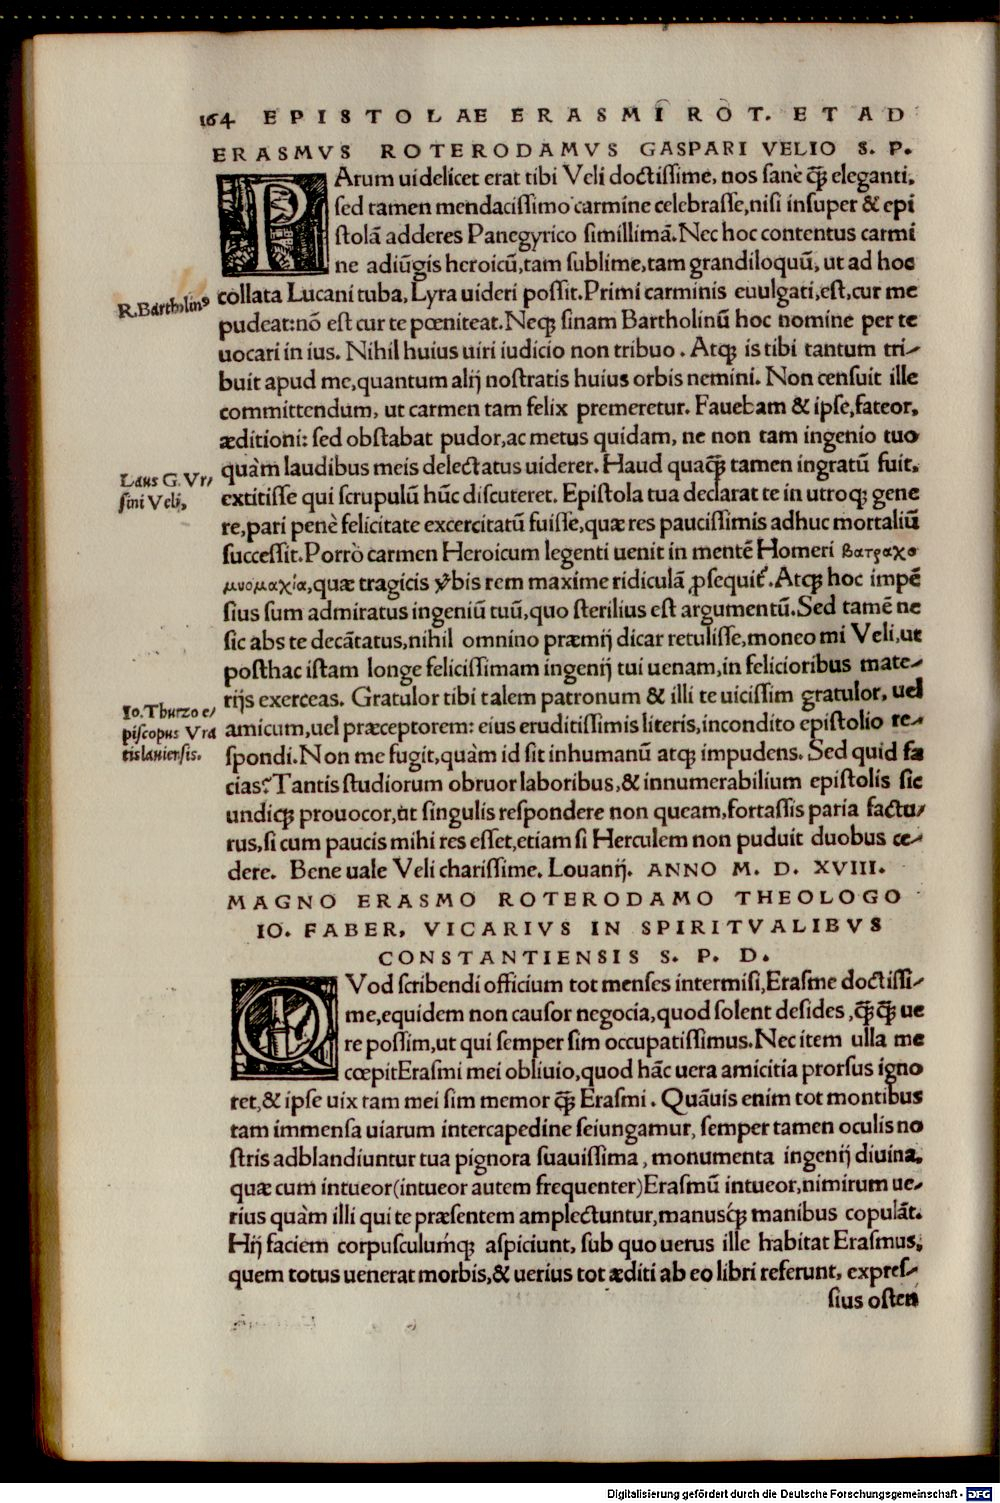 164 EPISTOLAE ERASMI ROT. ET AD
ERASMVS ROTERODAMVS GASPARI VELIO S. P.
PArum uidelicet erat tibi Veli doctissime, nos sanè q̃ꝫ eleganti,
sed tamen mendacissimo carmine celebrasse,nisi insuper & epi
stolã adderes Panegyrico simillimã.Nec hoc contentus carmi
ne adiũgis heroicũ,tam sublime,tam grandiloquũ, ut ad hoc
R.Bartholinꝰ
collata Lucani tuba, Lyra uideri possit.Primi carminis euulgati,est,cur me
pudeat:nõ est cur te pœniteat.Neqꝫ sinam Bartholinũ hoc nomine per te
uocari in ius. Nihil huius uiri iudicio non tribuo . Atqꝫ is tibi tantum tri-
buit apud me,quantum alij nostratis huius orbis nemini. Non censuit ille
committendum, ut carmen tam felix premeretur. Fauebam & ipse,fateor,
æditioni: sed obstabat pudor,ac metus quidam, ne non tam ingenio tuo
Laus G. Vr-
sini Velij,
quàm laudibus meis delectatus uiderer. Haud quaq̃ꝫ tamen ingratũ fuit,
extitisse qui scrupulũ hũc discuteret. Epistola tua declarat te in utroqꝫ gene
re,pari penè felicitate excercitatũ fuisse,quæ res paucissimis adhuc mortaliũ
successit.Porrò carmen Heroicum legenti uenit in mentẽ Homeri βατραχο
μυομαχία,quæ tragicis ꝟbis rem maxime ridiculã ꝓsequit᷑. Atqꝫ hoc impẽ
sius sum admiratus ingeniũ tuũ,quo sterilius est argumentũ.Sed tamẽ ne
sic abs te decãtatus,nihil omnino præmij dicar retulisse,moneo mi Veli,ut
posthac istam longe felicissimam ingenij tui uenam,in felicioribus mate-
rijs exerceas. Gratulor tibi talem patronum & illi te uicissim gratulor, uel
Io.Thurzo e-
piscopus Vra
tislauiensis.
amicum,uel præceptorem: eius eruditissimis literis,incondito epistolio re-
spondi.Non me fugit,quàm id sit inhumanũ atqꝫ impudens. Sed quid fa
cias? Tantis studiorum obruor laboribus,& innumerabilium epistolis sic
undiqꝫ prouocor,ut singulis respondere non queam,fortassis paria factu-
rus,si cum paucis mihi res esset,etiam si Herculem non puduit duobus ce-
dere. Bene uale Veli charissime. Louanij. ANNO M. D. XVIII.
MAGNO ERASMO ROTERODAMO THEOLOGO
IO. FABER, VICARIVS IN SPIRITVALIBVS
CONSTANTIENSIS S. P. D.
QVod scribendi officium tot menses intermisi,Erasme doctissi-
me,equidem non causor negocia,quod solent desides ,q̃ꝫq̃ꝫ ue
re possim,ut qui semper sim occupatissimus.Nec item ulla me
cœpitErasmi mei obliuio,quod hãc uera amicitia prorsus igno
ret,& ipse uix tam mei sim memor q̃ꝫ Erasmi . Quãuis enim tot montibus
tam immensa uiarum intercapedine seiungamur, semper tamen oculis no
stris adblandiuntur tua pignora suauissima , monumenta ingenij diuina,
quæ cum intueor(intueor autem frequenter)Erasmũ intueor,nimirum ue-
rius quàm illi qui te præsentem amplectuntur,manusq́ꝫ manibus copulãt.
Hij faciem corpusculumq́ꝫ aspiciunt, sub quo uerus ille habitat Erasmus,
quem totus uenerat morbis,& uerius tot æditi ab eo libri referunt, expres-
sius osten
Digitalisierung gefördert durch die Deutsche Forschungsgemeinschaft - DFG